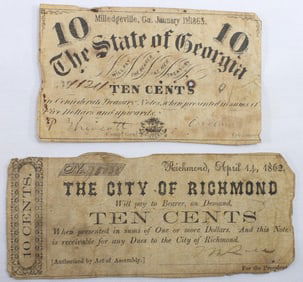 Milledgeville, Ga. January 1st 1863.
10 10
The State of Georgia
WILL PAY THE BEARER AT HER TREASURY
TEN CENTS
in Confederate Treasury Notes, when presented in sums of
Five Dollars and upwards.
Richmond, April 14, 1862.
THE CITY OF RICHMOND
Will pay to Bearer, on Demand,
TEN CENTS
When presented in sums of One or more Dollars. And this Note
is receivable for any Dues to the City of Richmond.
[Authorized by Act of Assembly.]
10 CENTS